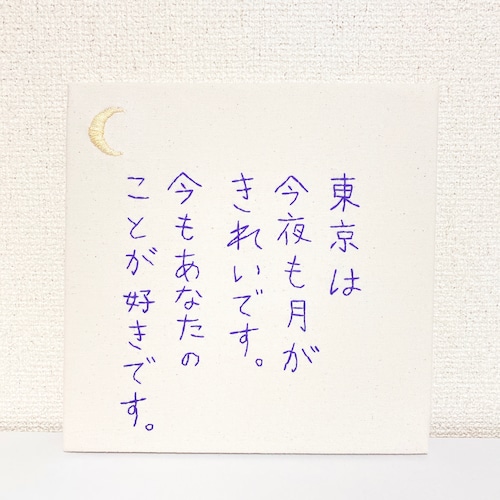 東京は
今夜も月が
きれいです。
今もあなたの
ことが好きです。